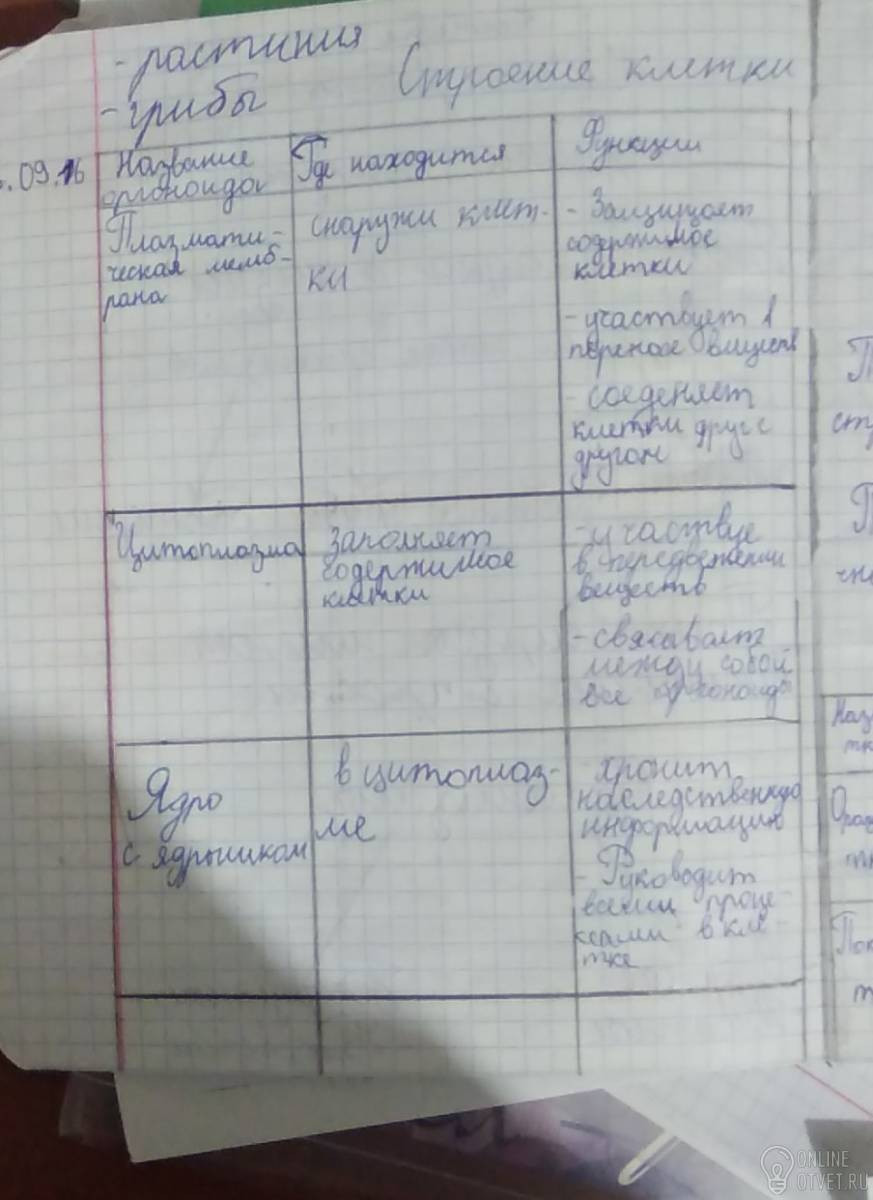 - растиния
- грибы
Строение клетки
.09.16
Название
органоида
Где находится
Функции
Плазмати-
ческая мемб-
рана
снаружи клет-
ки
- Защищает
содержимое
клетки
- участвует в
переносе веществ
- соеденяет
клетки друг с
другом
Цитоплазма
Заполняет
содержимое
клетки
- участвуе
в передвежении
веществ
- связывает
между собой
все органоиды
Ядро
с ядрышком
в цитоплаз-
ме
- хронит
наследственную
информацию
- Руководит
всеми проце-
ссами в кле-
тке
П
ст
П
чн
Наз
тк
тк
Пок
т
ONLINE
OTVET.RU